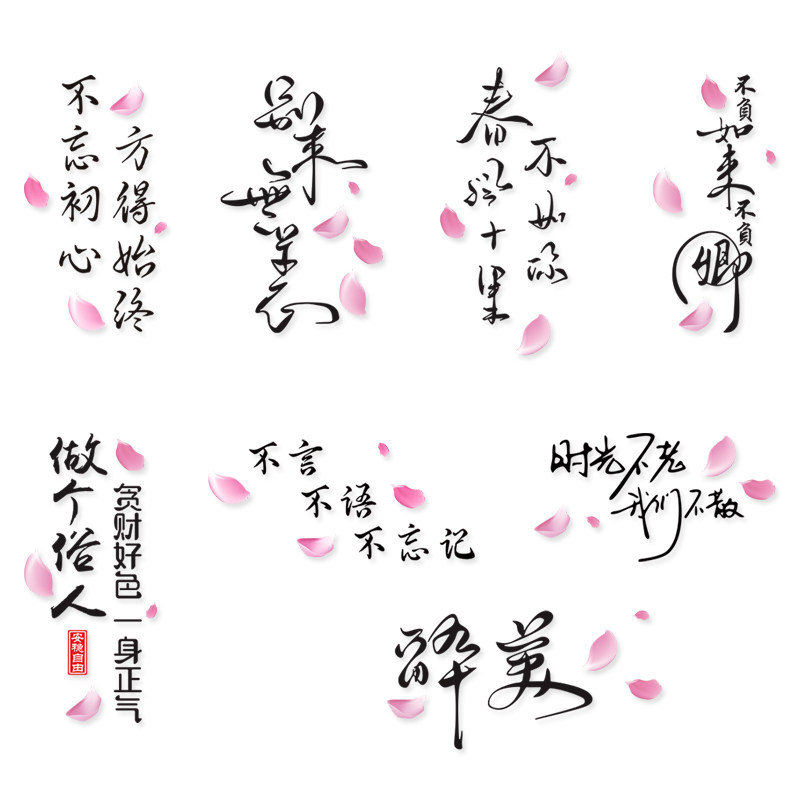 不忘初心
方得始终
别来無恙
春风十里
不如你
不負
如来
不負
卿
做个俗人
贪财好色 一身正气
安稳自由
不言
不语
不忘记
时光不老
我们不散
醉美